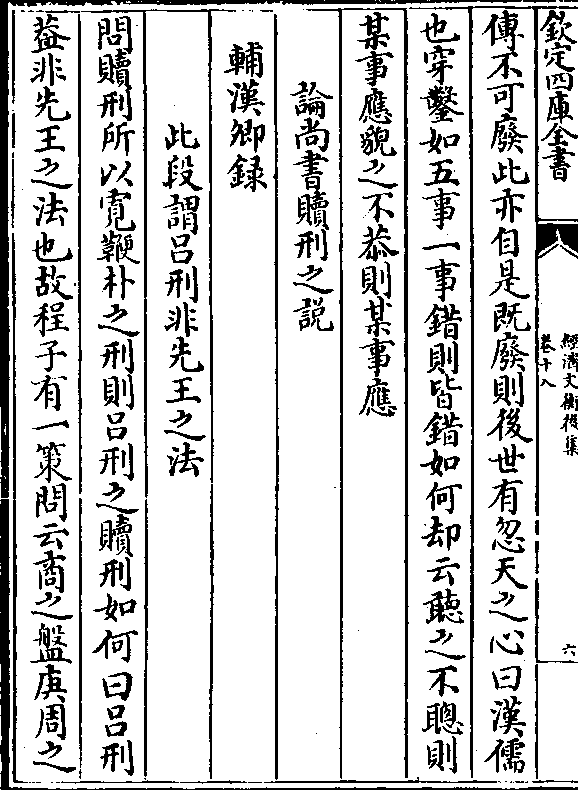 欽定四庫全書
經濟文衡後集
卷十八
六
傳不可廢此亦自是既廢則後世有忽天之心曰漢儒
也穿鑿如五事一事錯則皆錯如何却云聽之不聰則
某事應貌之不恭則某事應
論尚書贖刑之説
輔漢卿録
此段謂吕刑非先王之法
問贖刑所以寛鞭朴之刑則吕刑之贖刑如何曰吕刑
葢非先王之法也故程子有一策問云商之盤庚周之